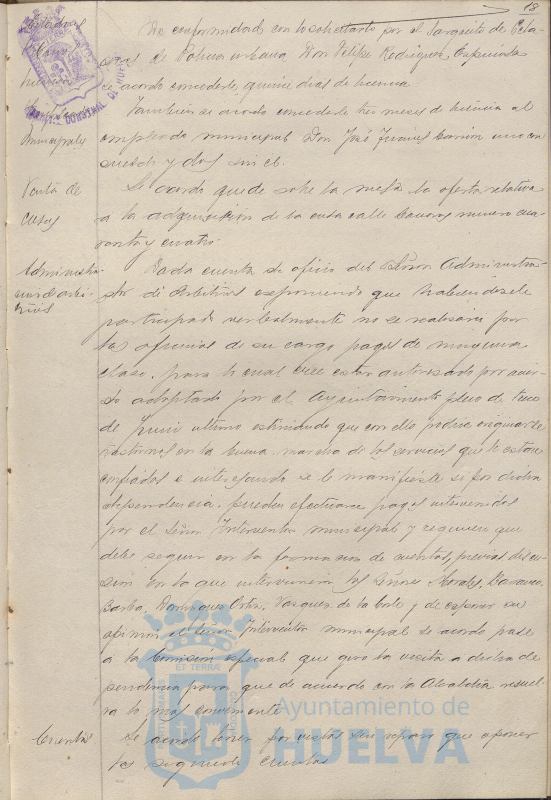 18
De conformidad con lo solicitado por el Sargento de Cela-
dores de Policia urbana, Don Felipe Rodriguez Espinosa
se acordo concederle quince dias de licencia.
Tambien se acordo concederle tres meses de licencia al
Municipales
empleado municipal Don José Jimenez Carrion uno con
sueldo y dos sin el.
Venta de
casas
Se acordo quede sobre la mesa la oferta relativa
a la adquisicion de la casa calle numero cua-
renta y cuatro.
Administra-
cion de arbi-
trios
Dada cuenta de oficio del Señor Administra-
dor de Arbitrios exponiendo que habiendosele
participado verbalmente no se realizara por
las oficinas de su cargo pagos de ninguna
clase, para lo cual cree estar autorizado por acuer-
do adoptado por el Ayuntamiento pleno de trece
de Junio ultimo estimando que con ello podria originarse
trastornos en la buena marcha de los servicios que le estan
confiados e interesando se le manifieste si por dicha
dependencia, pueden efectuarse pagos intervenidos
por el Señor Interventor municipal y regimen que
debe seguir en la formacion de cuentas, previa discu-
sion en la que intervinieron los Señores Morales, Navarro,
Barba, Dominguez Ortiz, Vazquez de la Corte y de exponer su
opinion el Señor Interventor municipal se acordo pase
a la Comision especial que giro la visita a dicha de-
pendencia para que de acuerdo con la Alcaldia resuel-
va lo mas conveniente
Cuentas
Se acordo tener por vistas sin reparo que oponer
las siguientes cuentas
Ayuntamiento de
HUELVA